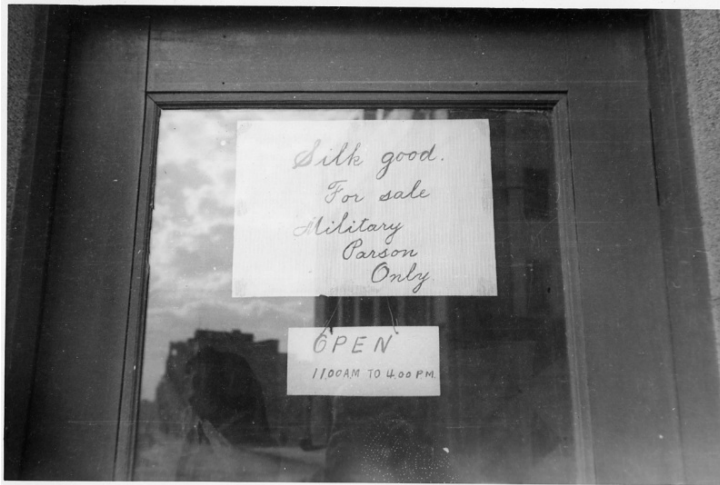 Silk good.
For sale
Military
Parson
Only
OPEN
11.00 AM TO 4.00 PM.